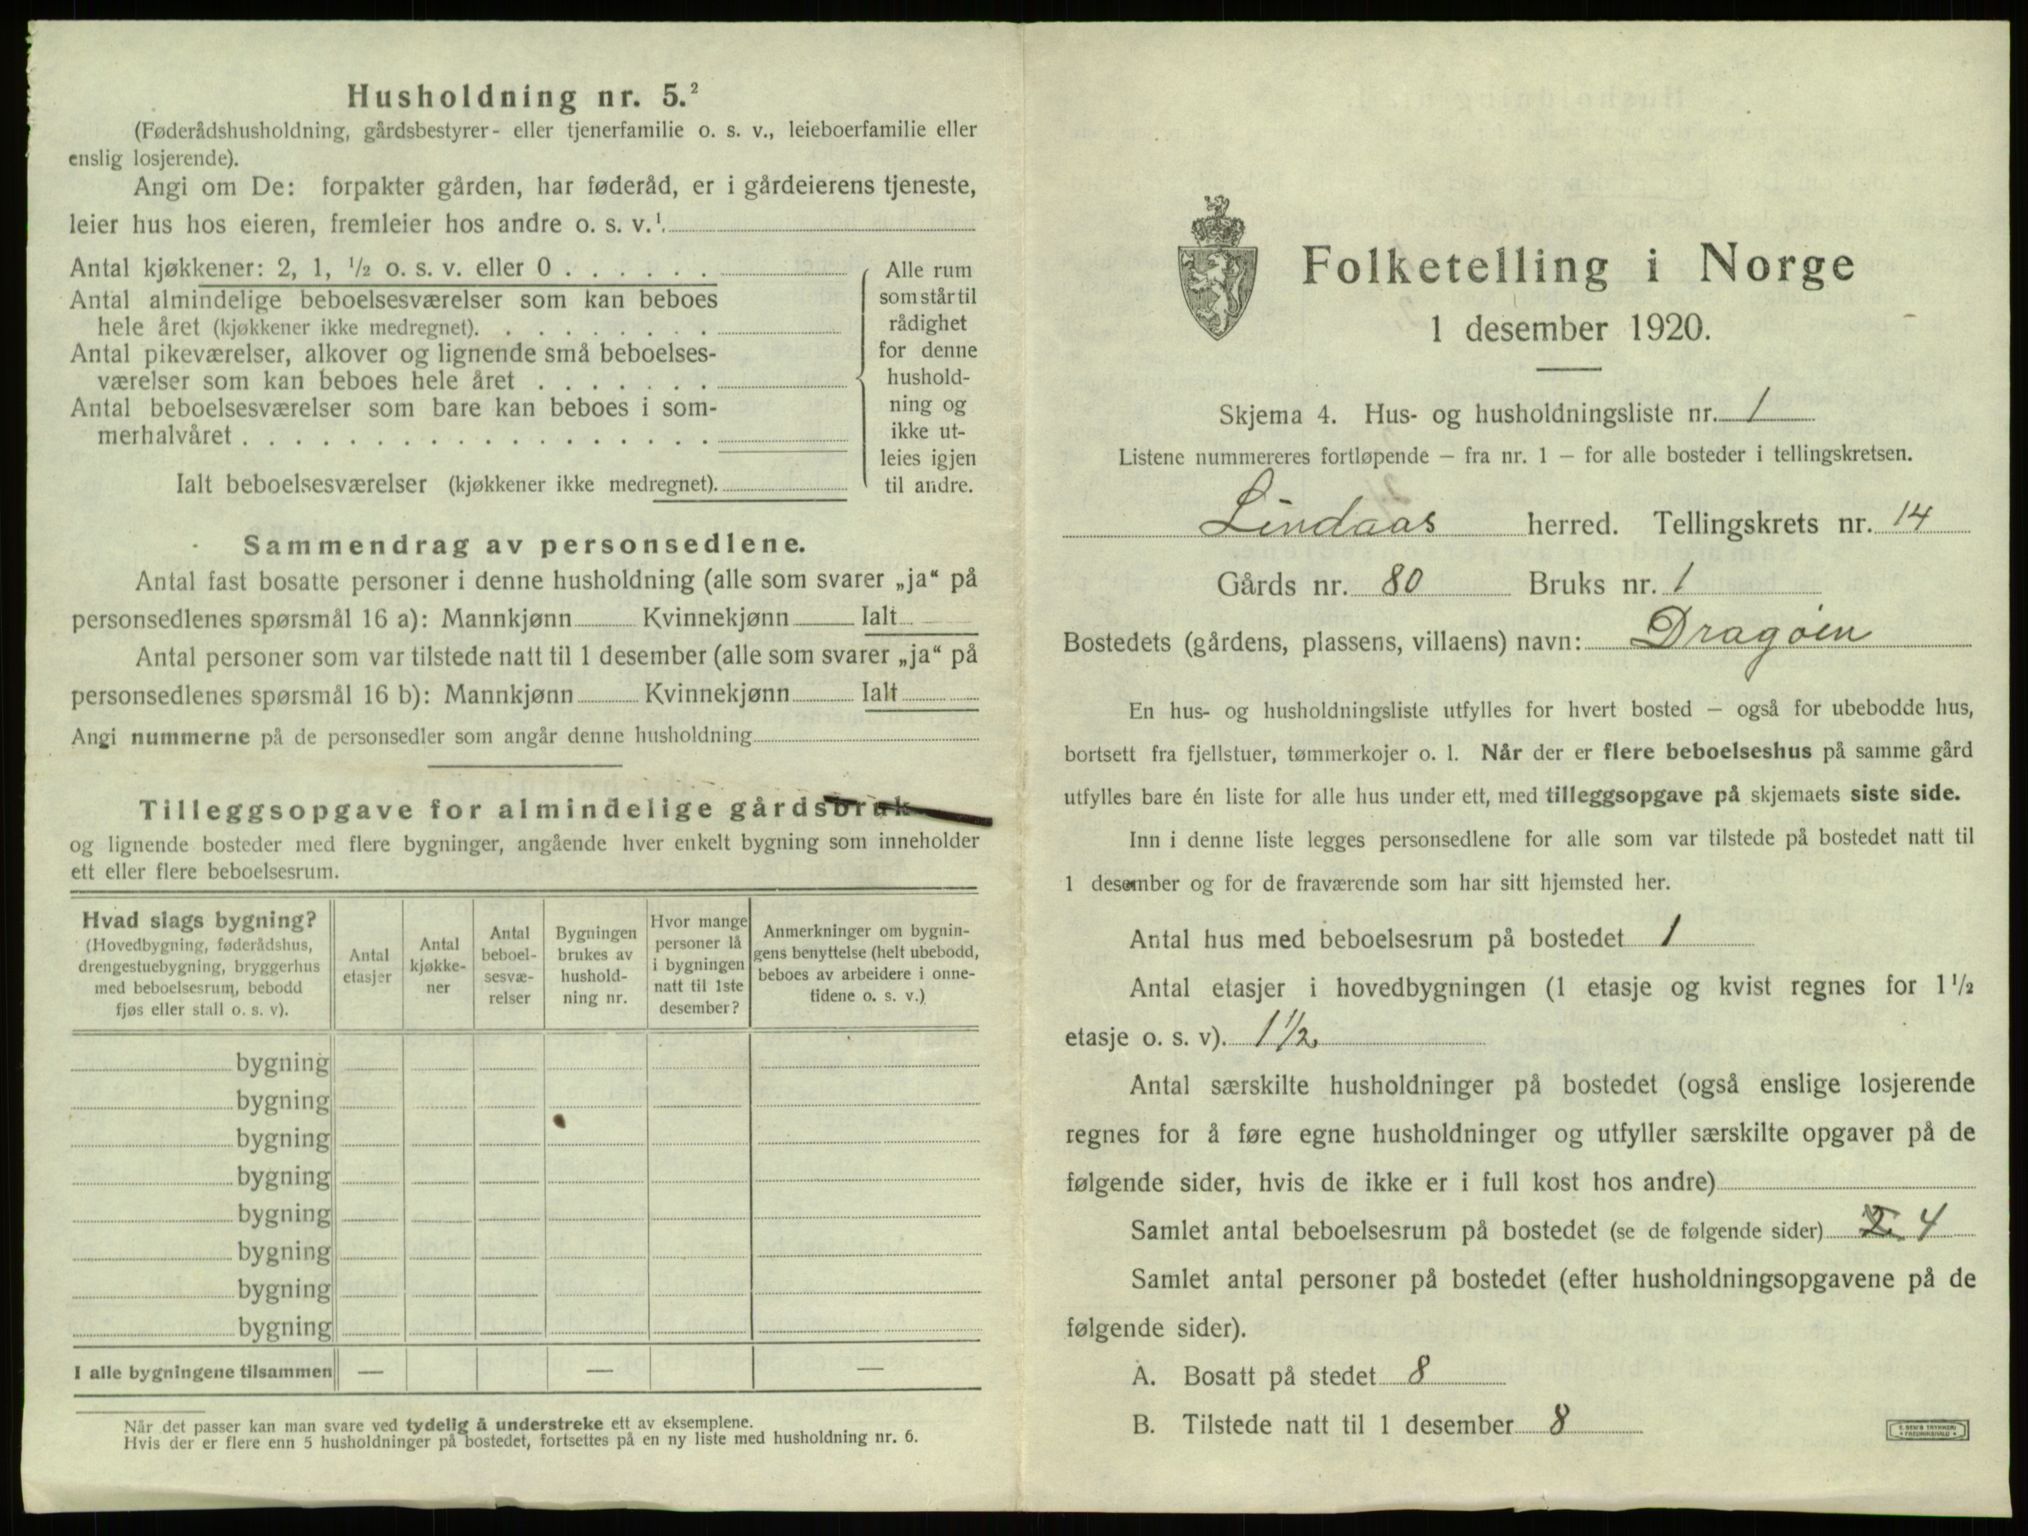 Husholdning nr. 5.²
(Føderådshusholdning, gårdsbestyrer- eller tjenerfamilie o. s. v., leieboerfamilie eller
enslig losjerende).
Angi om De: forpakter gården, har føderåd, er i gårdeierens tjeneste,
leier hus hos eieren, fremleier hos andre o. s. v.¹
Antal kjøkkener: 2, 1, ½ o. s. v. eller 0 . . . . . .
Antal almindelige beboelsesværelser som kan beboes
hele året (kjøkkener ikke medregnet). . . . . . . . .
Antal pikeværelser, alkover og lignende små beboelses-
værelser som kan beboes hele året . . . . . . .
Antal beboelsesværelser som bare kan beboes i som-
merhalvåret . . . . . . . . . . . . . . . . . .
Alle rum
som står til
rådighet
for denne
hushold-
ning og
ikke ut-
leies igjen
til andre.
Ialt beboelsesværelser (kjøkkener ikke medregnet).
Sammendrag av personsedlene.
Antal fast bosatte personer i denne husholdning (alle som svarer „ja“ på
personsedlenes spørsmål 16 a): Mannkjønn Kvinnekjønn Ialt
Antal personer som var tilstede natt til 1 desember (alle som svarer „ja“ på
personsedlenes spørsmål 16 b): Mannkjønn Kvinnekjønn Ialt
Angi nummerne på de personsedler som angår denne husholdning
Tilleggsopgave for almindelige gårdsbruk
og lignende bosteder med flere bygninger, angående hver enkelt bygning som inneholder
ett eller flere beboelsesrum.
Hvad slags bygning?
(Hovedbygning, føderådshus,
drengestuebygning, bryggerhus
med beboelsesrum, bebodd
fjøs eller stall o. s. v).
Antal
etasjer
Antal
kjøkke-
ner
Antal
beboel-
sesvæ-
relser
Bygningen
brukes av
hushold-
ning nr.
Hvor mange
personer lå
i bygningen
natt til 1ste
desember?
Anmerkninger om bygnin-
gens benyttelse (helt ubebodd,
beboes av arbeidere i onne-
tidene o. s. v.)
bygning
bygning
bygning
bygning
bygning
bygning
bygning
bygning
I alle bygningene tilsammen — — —
Når det passer kan man svare ved tydelig å understreke ett av eksemplene.
Hvis der er flere enn 5 husholdninger på bostedet, fortsettes på en ny liste med husholdning nr. 6.
Folketelling i Norge
1 desember 1920.
Skjema 4. Hus- og husholdningsliste nr. 1
Listene nummereres fortløpende — fra nr. 1 — for alle bosteder i tellingskretsen.
Lindaas herred. Tellingskrets nr. 14
Gårds nr. 80 Bruks nr. 1
Bostedets (gårdens, plassens, villaens) navn: Dragøen
En hus- og husholdningsliste utfylles for hvert bosted — også for ubebodde hus,
bortsett fra fjellstuer, tømmerkojer o. l. Når der er flere beboelseshus på samme gård
utfylles bare én liste for alle hus under ett, med tilleggsopgave på skjemaets siste side.
Inn i denne liste legges personsedlene for alle som var tilstede på bostedet natt til
1 desember og for de fraværende som har sitt hjemsted her.
Antal hus med beboelsesrum på bostedet 1
Antal etasjer i hovedbygningen (1 etasje og kvist regnes for 1½
etasje o. s. v). 1½
Antal særskilte husholdninger på bostedet (også enslige losjerende
regnes for å føre egne husholdninger og utfyller særskilte opgaver på de
følgende sider, hvis de ikke er i full kost hos andre)
Samlet antal beboelsesrum på bostedet (se de følgende sider) 2 4
Samlet antal personer på bostedet (efter husholdningsopgavene på de
følgende sider).
A. Bosatt på stedet 8
B. Tilstede natt til 1 desember 8